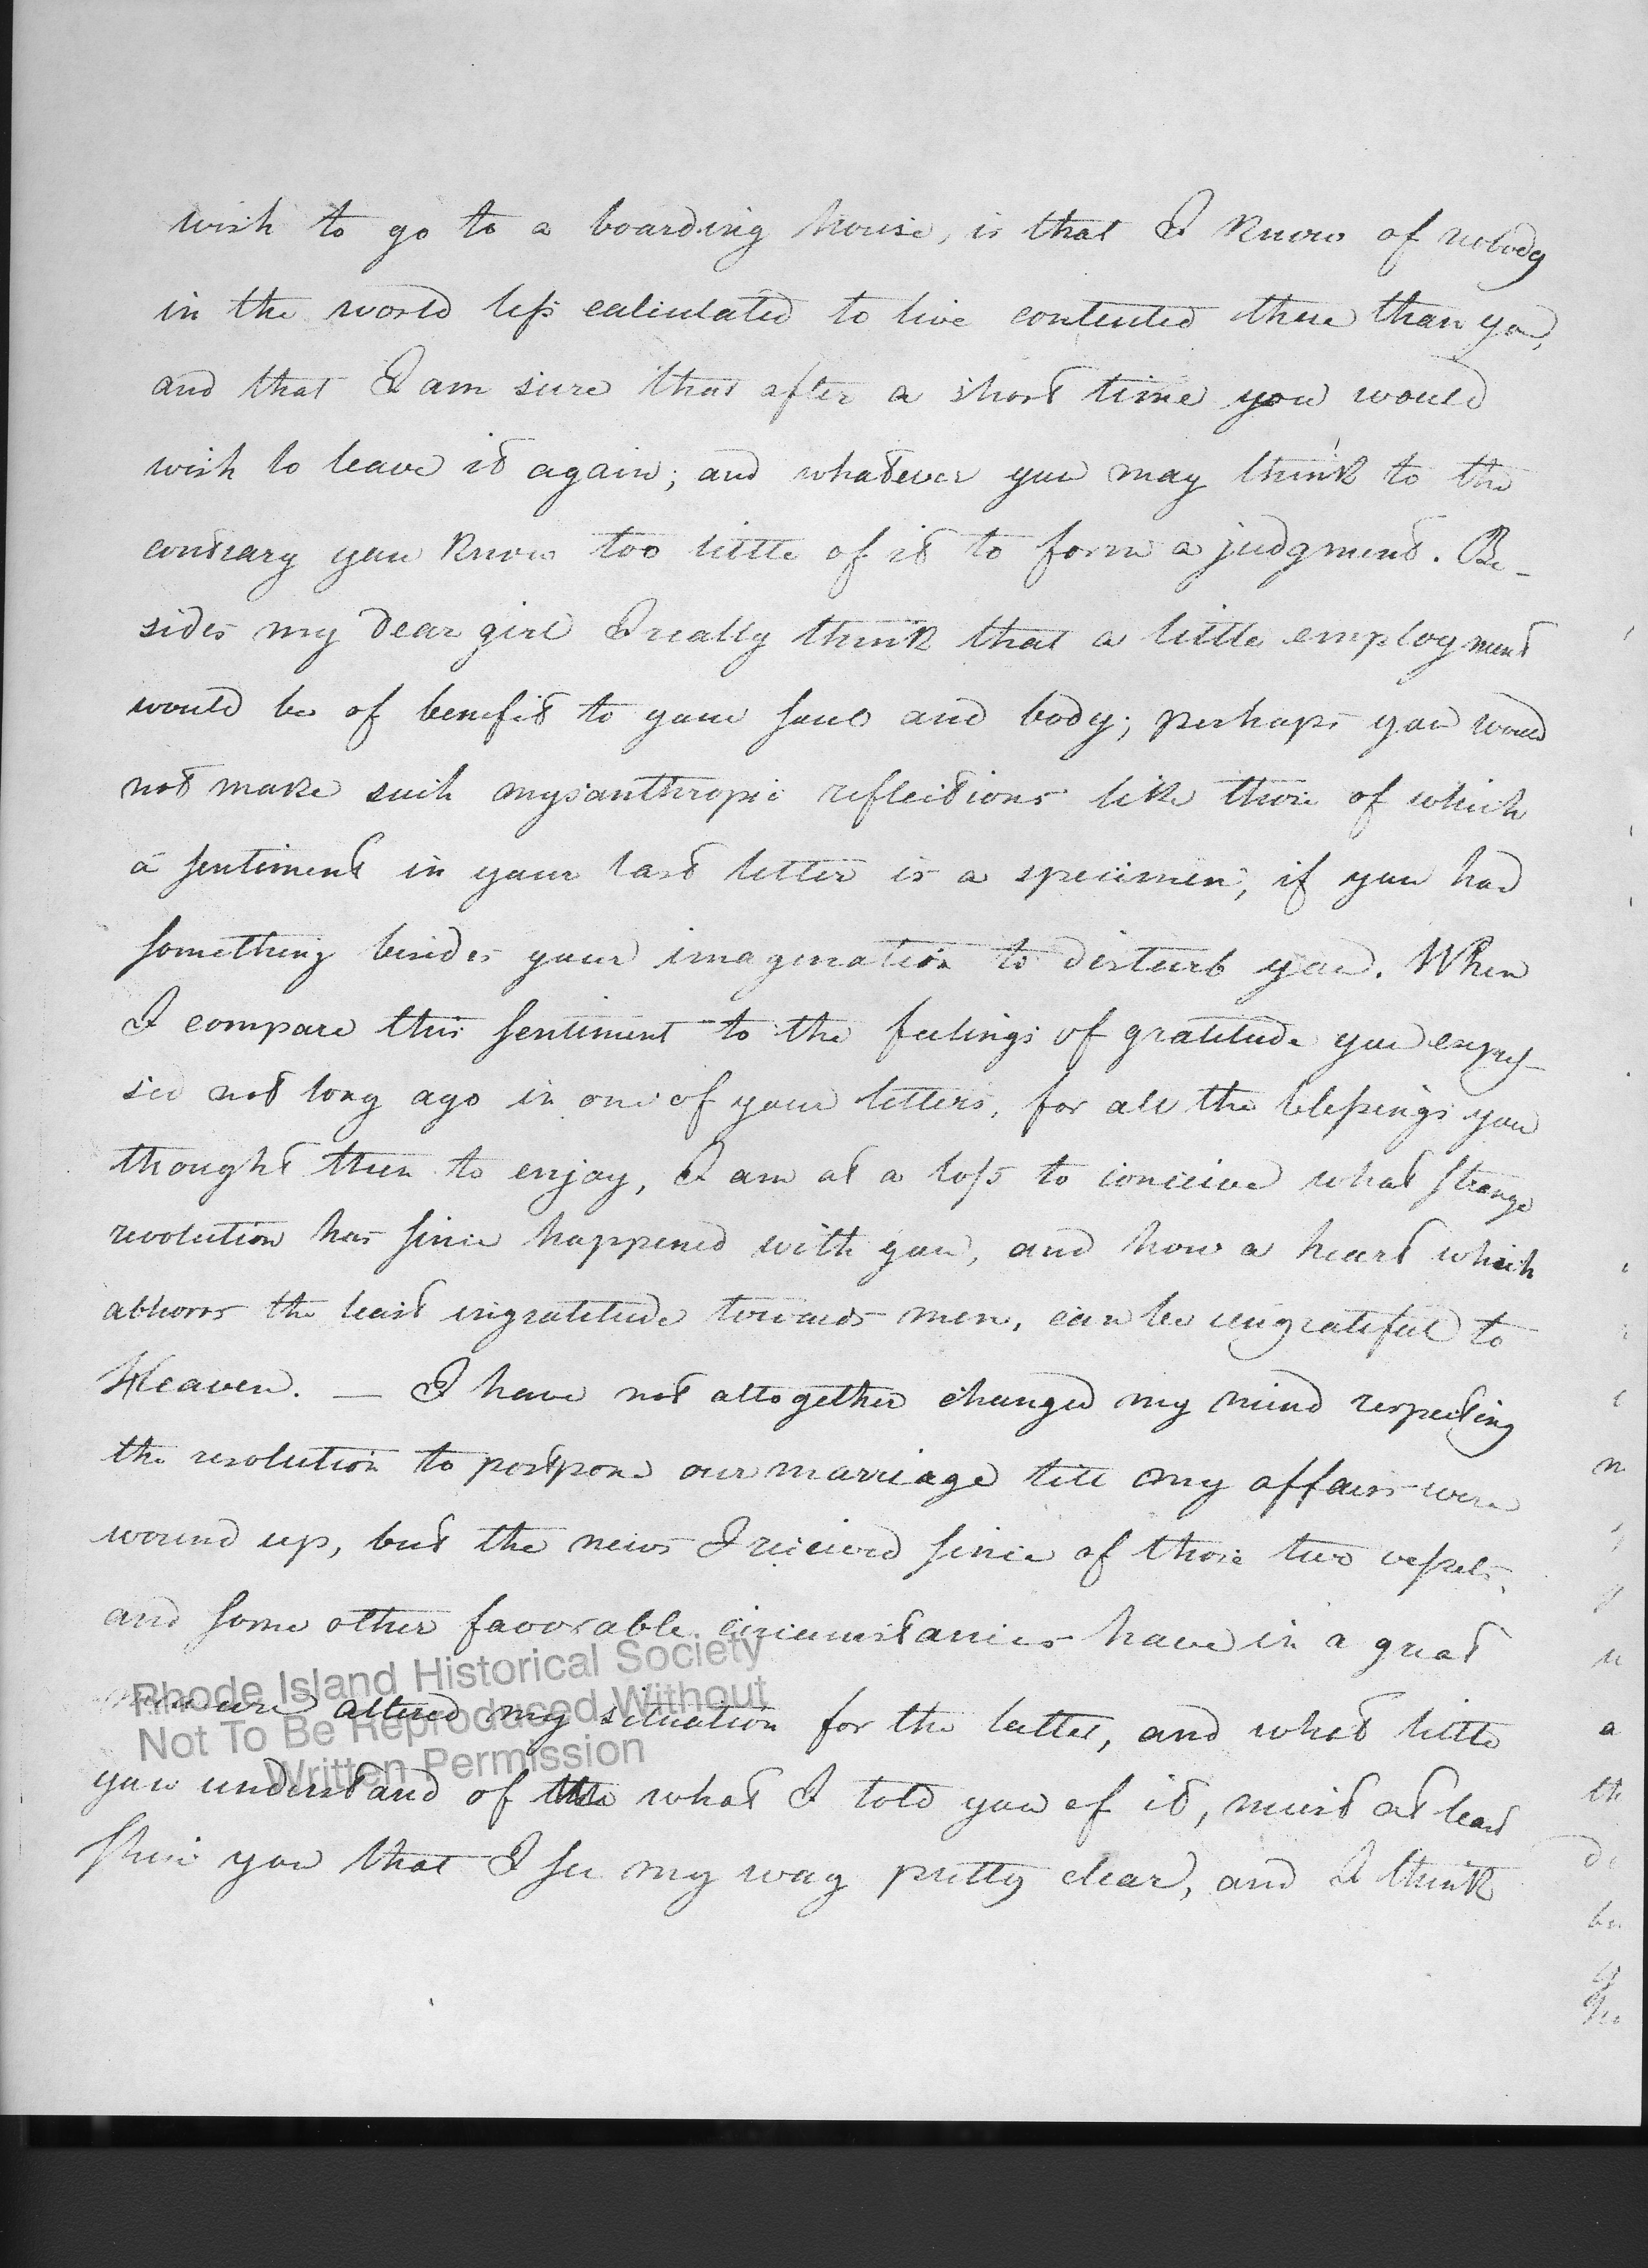 wish to go to a boarding house, is that I know of nobody
in the world less calculated to live contented there than you,
and that I am sure that after a short time you would
wish to leave it again; and whatever you may think to the
contrary you know too little of it to form a judgment. Be-
sides my dear girl I really think that a little employment
would be of benefit to your soul and body; perhaps you would
not make such mysanthropic reflections like those of which
a sentiment in your last letter is a specimen, if you had
something besides your imagination to disturb you. When
I compare this sentiment to the feelings of gratitude you expres-
sed not long ago in one of your letters, for all the blessings you
thought then to enjoy, I am at a loss to conceive what strange
revolution has since happened with you, and how a heart which
abhors the least ingratitude towards men, can be ungrateful to
Heaven. — I have not altogether changed my mind respecting
the resolution to postpone our marriage till my affairs were
wound up, but the news I received since of those two vessels,
and some other favorable circumstances have in a great
measure altered my situation for the better, and what little
you understand of the what I told you of it, must at least
shew you that I see my way pretty clear, and I think
Rhode Island Historical Society
Not To Be Reproduced Without
Written Permission